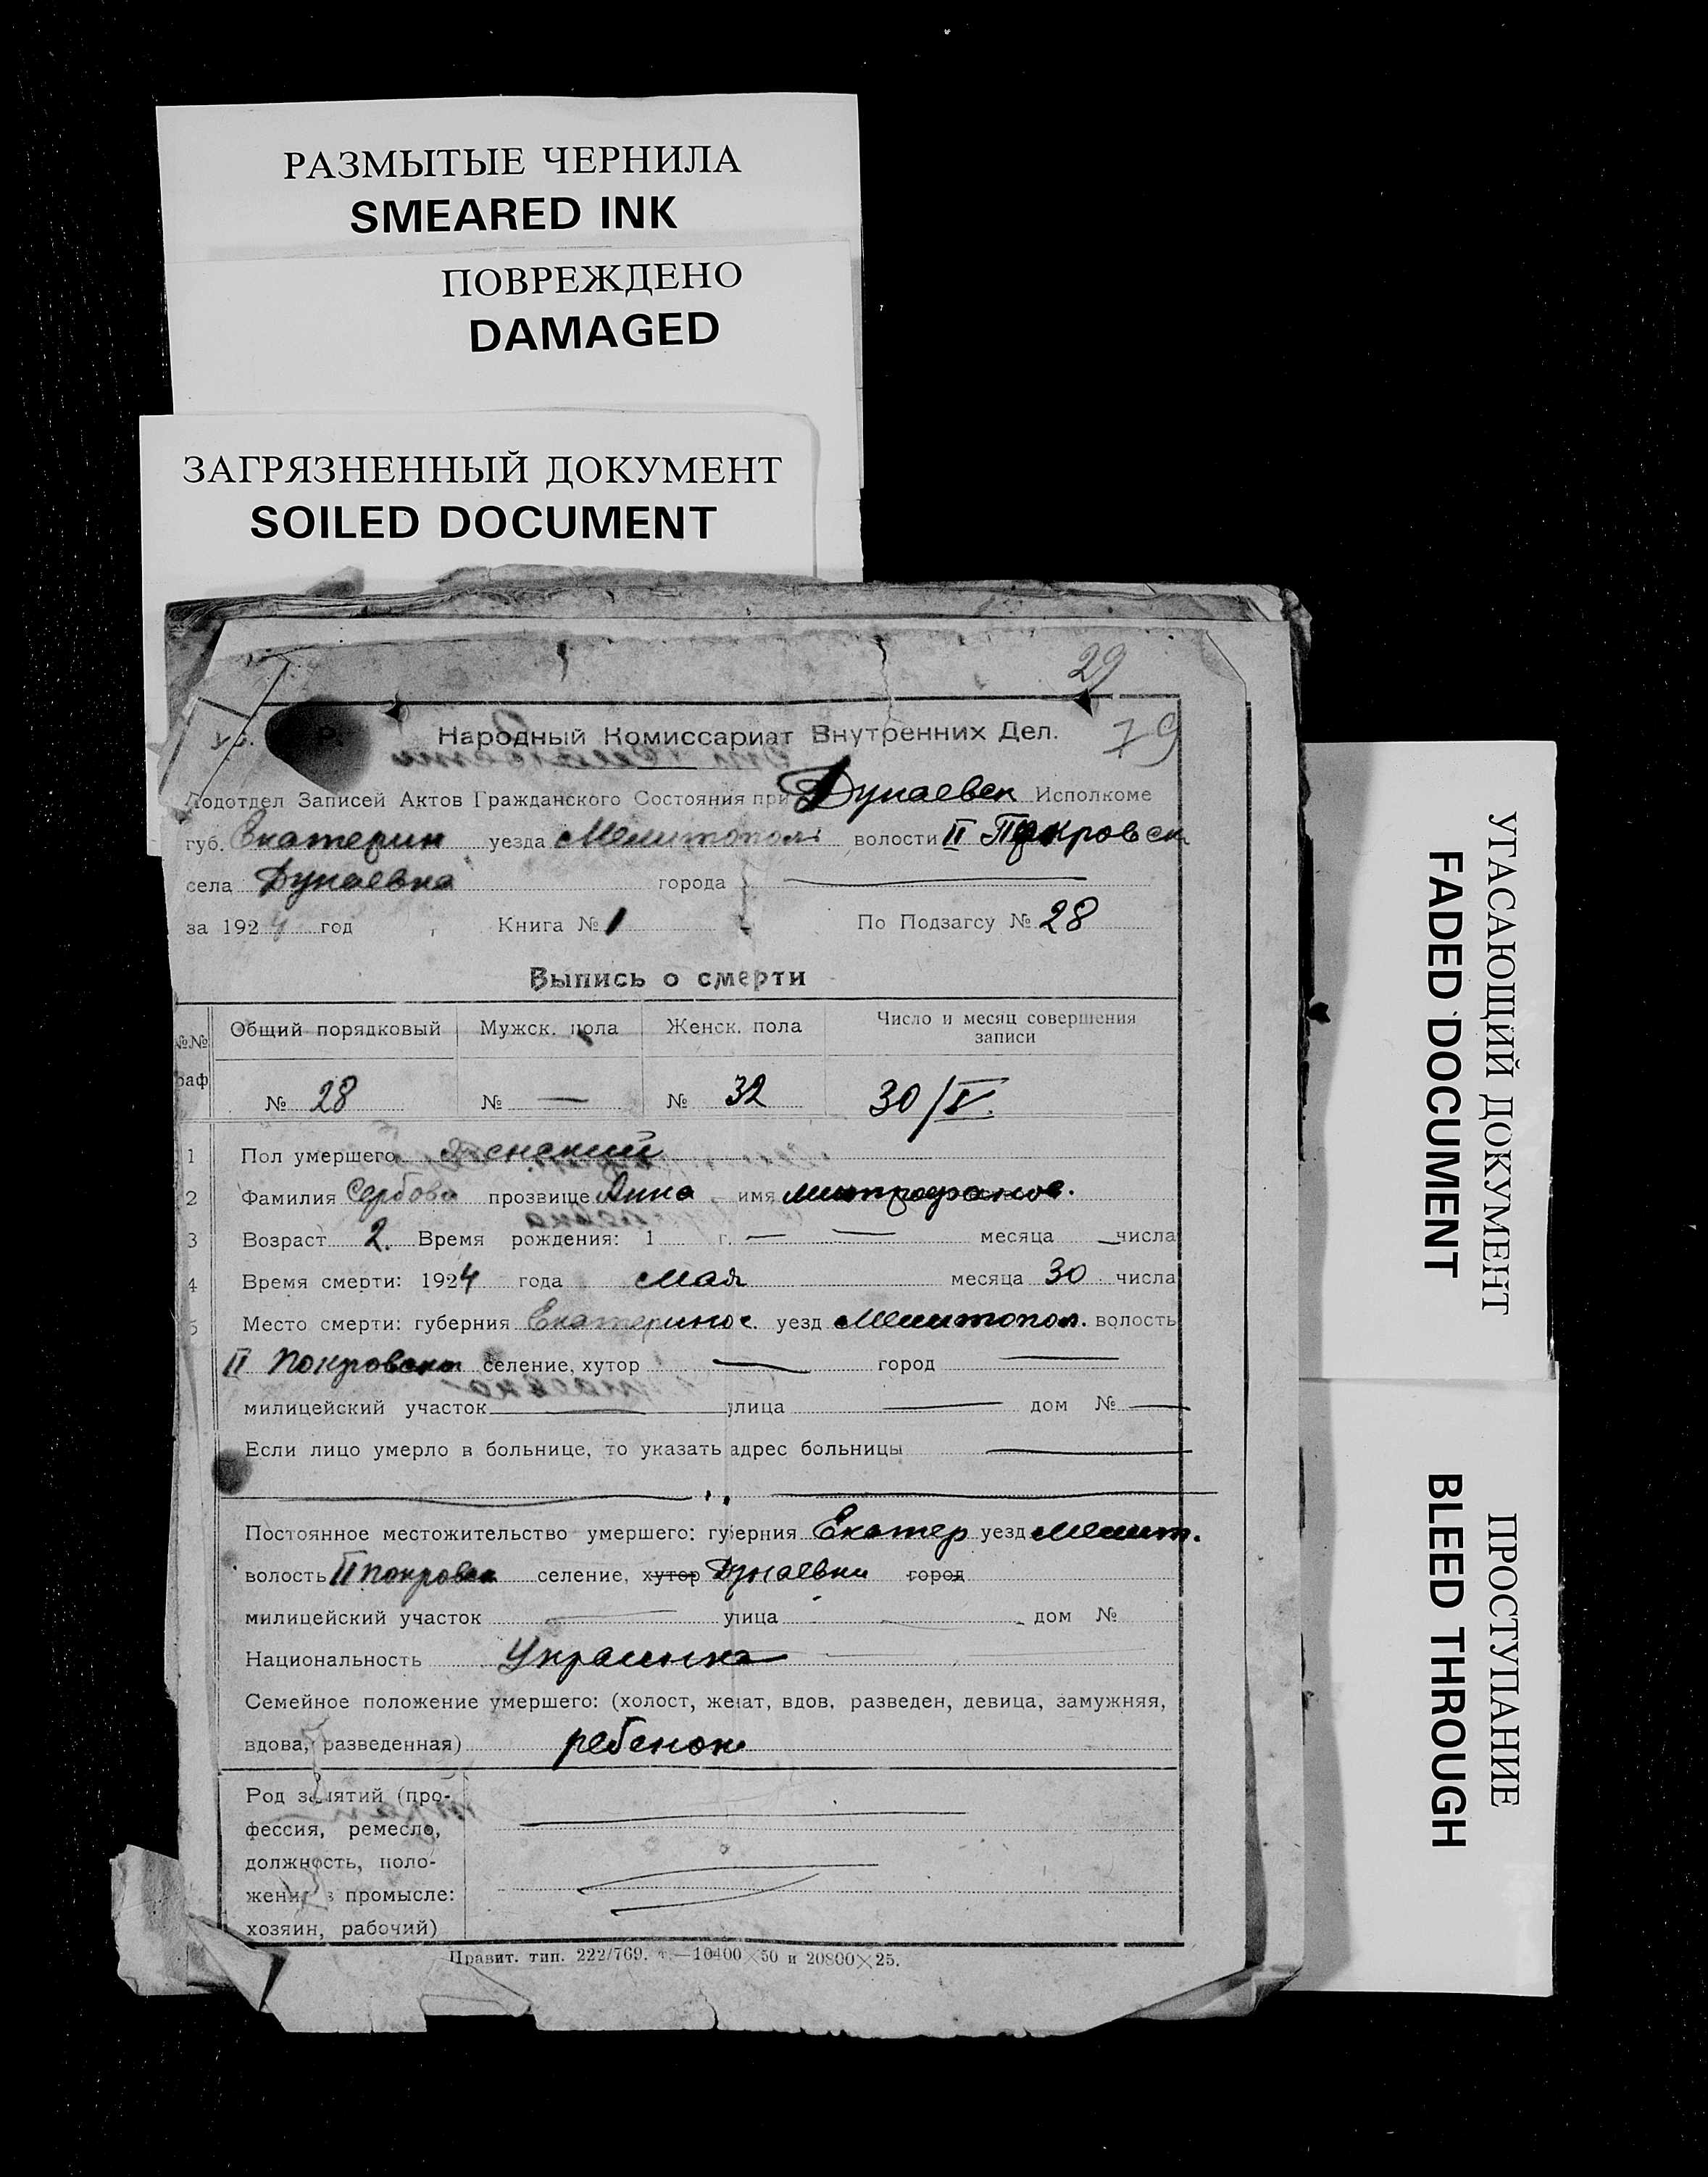 РАЗМЫТЫЕ ЧЕРНИЛА
SMEARED INK
ПОВРЕЖДЕНО
DAMAGED
ЗАГРЯЗНЕННЫЙ ДОКУМЕНТ
SOILED DOCUMENT
29
Р. Народный Комиссариат Внутренних Дел. 79
Подотдел Записей Актов Гражданского Состояния при Дунаевск Исполкоме
губ. Екатерин уезда Мелитополь волости II Покровск
села Дунаевка города —
за 1924 год Книга № 1 По Подзагсу № 28
Выпись о смерти
№№ раф Общий порядковый Мужск. пола Женск. пола Число и месяц совершения записи
№ 28 № — № 32 30/V.
1 Пол умершего женский
2 Фамилия Сербова прозвище Анна имя митрофанов.
3 Возраст 2. Время рождения: 1 г. — — месяца — числа
4 Время смерти: 1924 года мая месяца 30 числа
5 Место смерти: губерния Екатеринос. уезд Мелитопол. волость
II Покровск селение, хутор — город —
милицейский участок — улица — дом № —
Если лицо умерло в больнице, то указать адрес больницы —
Постоянное местожительство умершего: губерния Екатер уезд Мелит.
волость II покровск селение, хутор Дунаевки город
милицейский участок — улица — дом №
Национальность Украинка
Семейное положение умершего: (холост, женат, вдов, разведен, девица, замужняя,
вдова, разведенная) ребенок
Род занятий (про-
фессия, ремесло,
должность, поло-
жение в промысле:
хозяин, рабочий)
Правит. тип. 222/769. т.—10400×50 и 20800×25.
УГАСАЮЩИЙ ДОКУМЕНТ
FADED DOCUMENT
ПРОСТУПАНИЕ
BLEED THROUGH